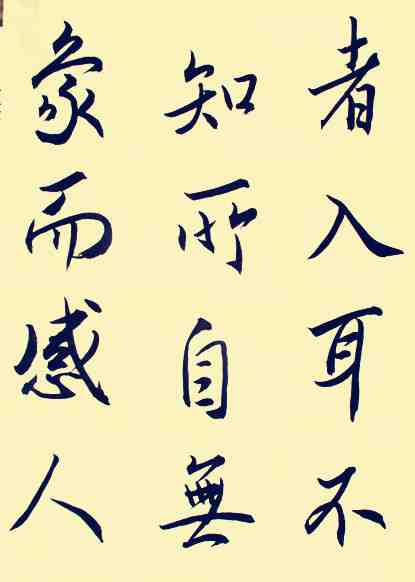 者入耳不
知所自無
象而感人